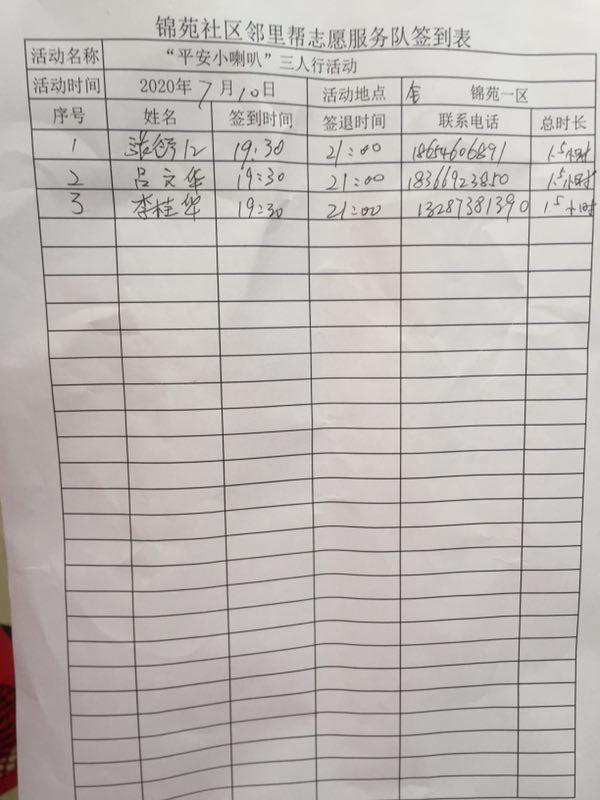 锦苑社区邻里帮志愿服务队签到表
活动名称 “平安小喇叭”三人行活动
活动时间 2020年7月10日 活动地点 锦苑一区
序号 姓名 签到时间 签退时间 联系电话 总时长
1 19:30 21:00 18654606891 1.5小时
2 吕文华 19:30 21:00 18366923850 1.5小时
3 李桂华 19:30 21:00 13287381390 1.5小时